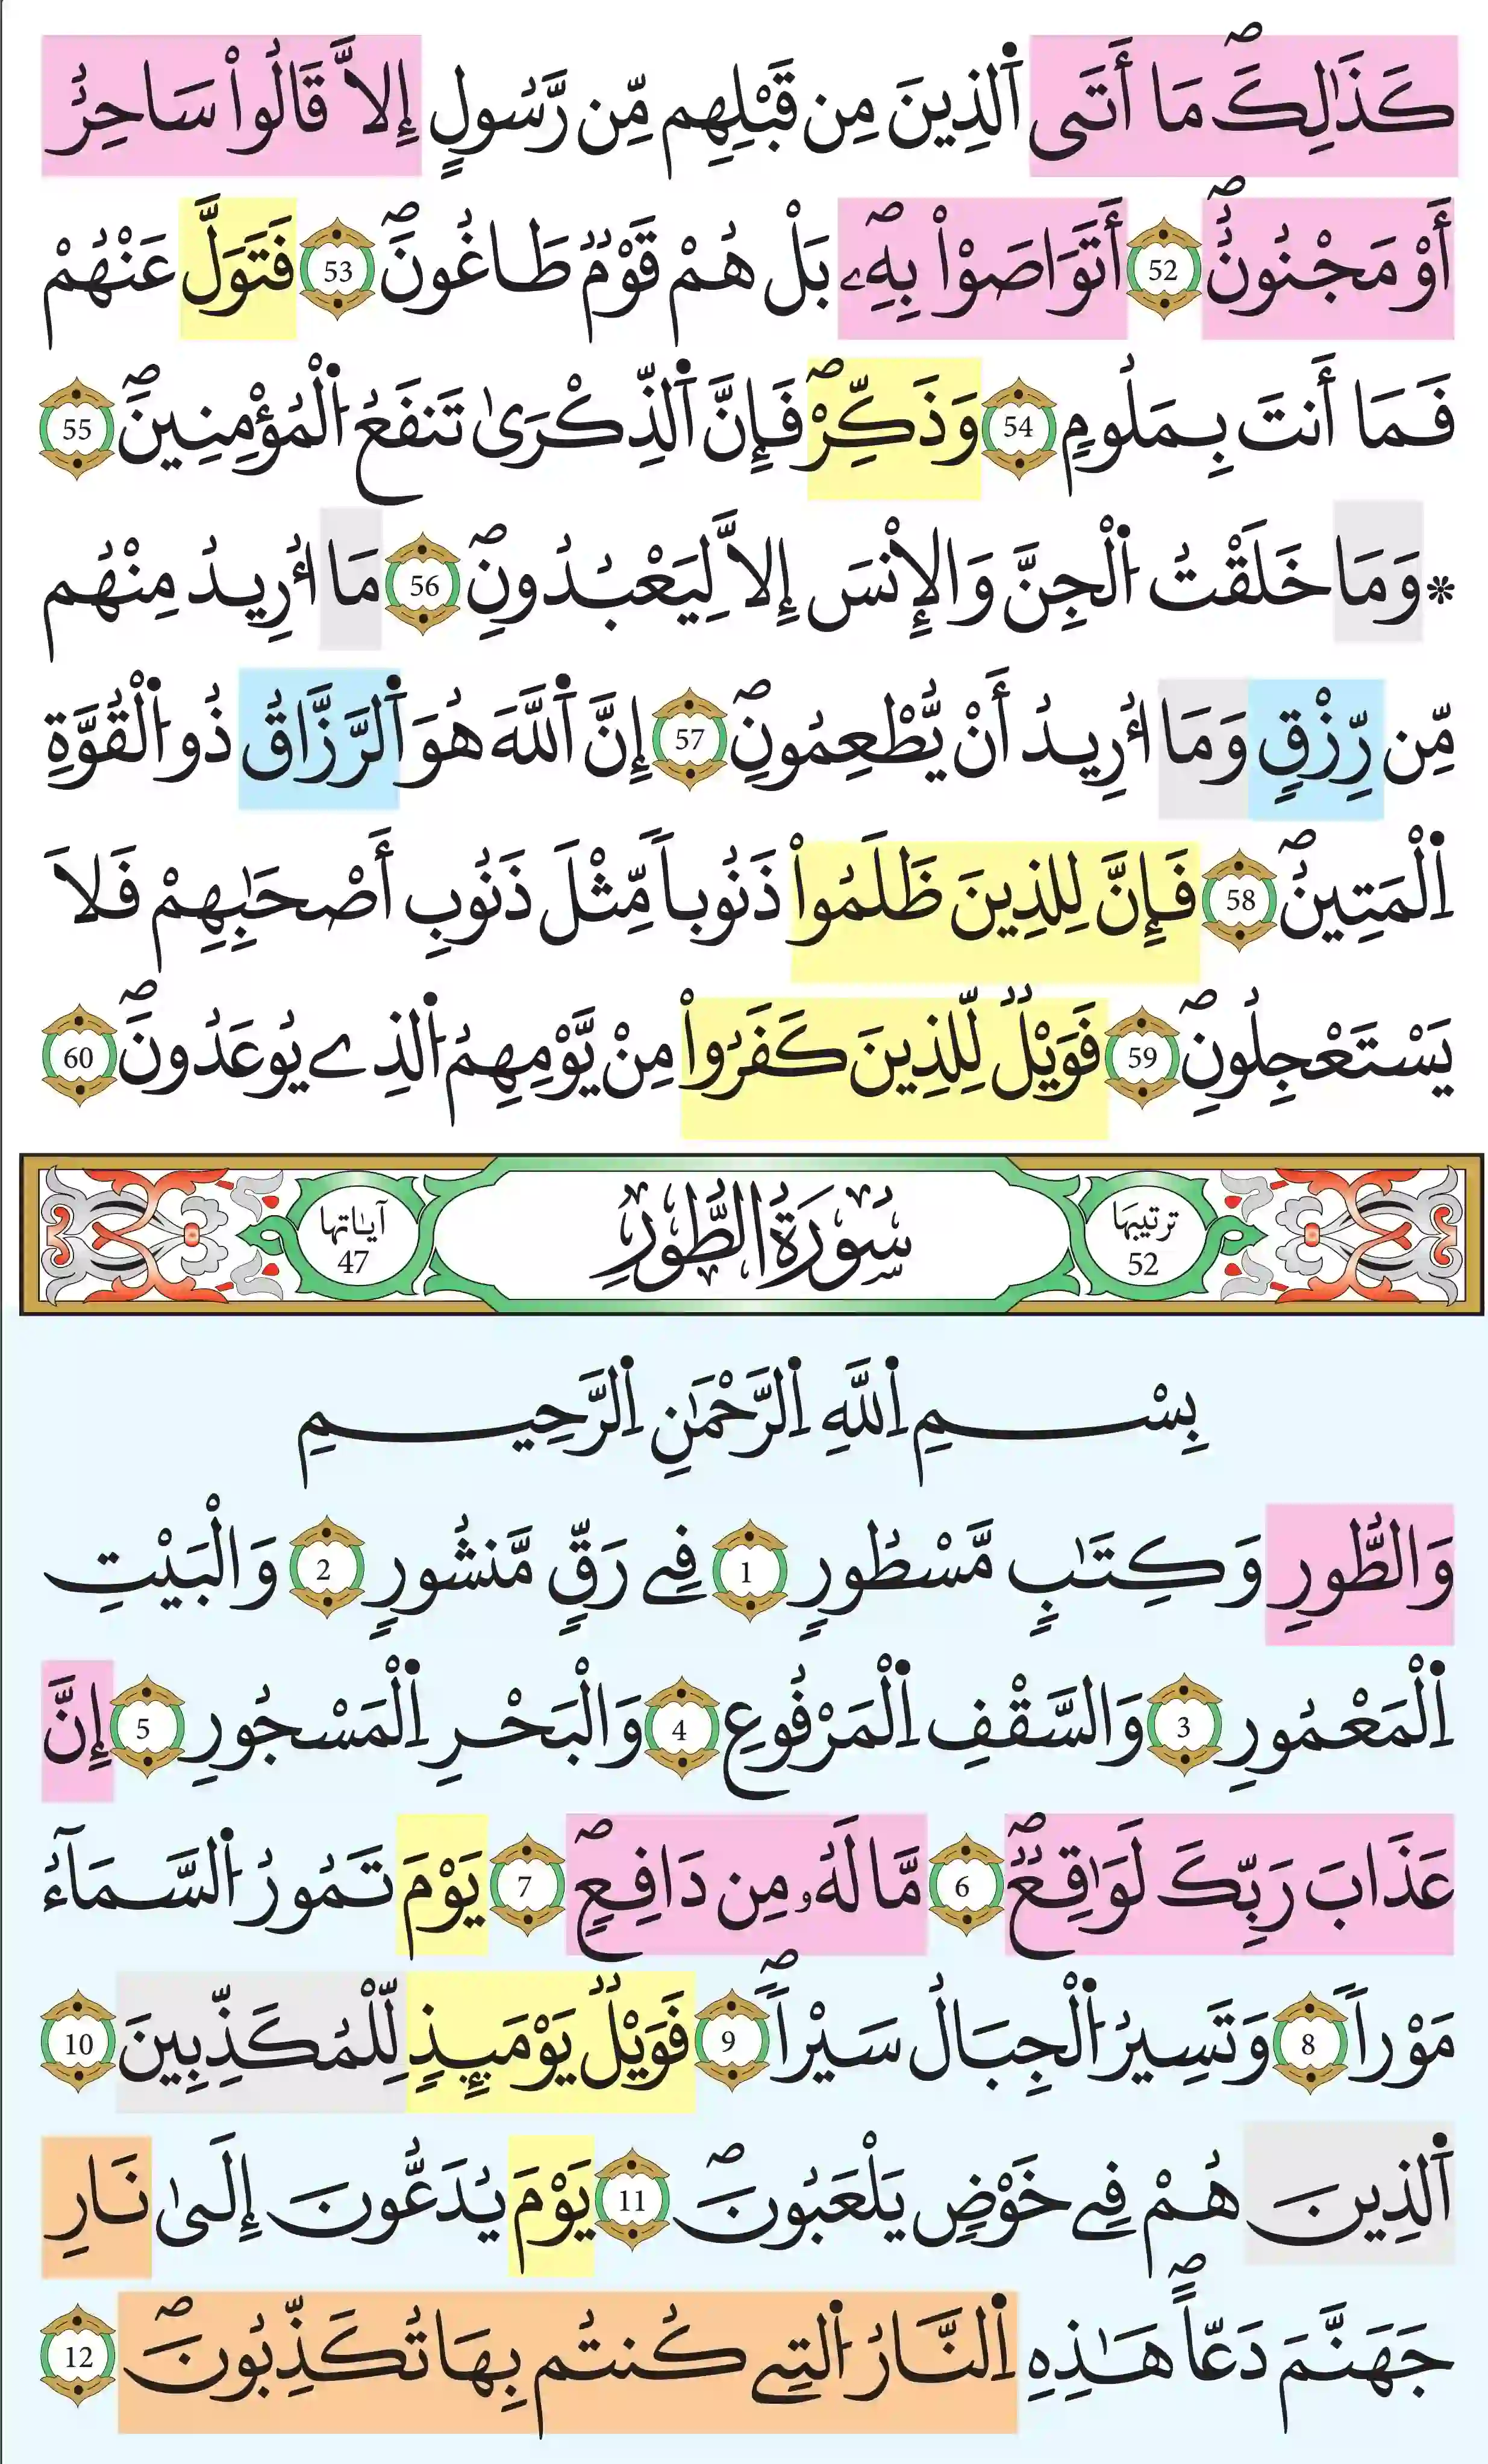 كَذَٰلِكَۖ مَا أَتَى اَ۬لذِينَ مِن قَبْلِهِم مِّن رَّسُولٍ إِلاَّ قَالُواْ سَاحِرٌ
أَوْ مَجْنُونٌۖ 52 أَتَوَاصَوْاْ بِهِۦۖ بَلْ هُمْ قَوْمٌ طَاغُونَۖ 53 فَتَوَلَّ عَنْهُمْ
فَمَا أَنتَ بِمَلُومٍ 54 وَذَكِّرْۖ فَإِنَّ اَ۬لذِّكْرَىٰ تَنفَعُ اُ۬لْمُؤْمِنِينَۖ 55
* وَمَا خَلَقْتُ اُ۬لْجِنَّ وَالِانْسَ إِلاَّ لِيَعْبُدُونِۖ 56 مَا أُرِيدُ مِنْهُم
مِّن رِّزْقٍ وَمَا أُرِيدُ أَنْ يُّطْعِمُونِۖ 57 إِنَّ اَ۬للَّهَ هُوَ اَ۬لرَّزَّاقُ ذُو اُ۬لْقُوَّةِ
اِ۬لْمَتِينُۖ 58 فَإِنَّ لِلذِينَ ظَلَمُواْ ذَنُوباً مِّثْلَ ذَنُوبِ أَصْحَٰبِهِمْ فَلاَ
يَسْتَعْجِلُونِۖ 59 فَوَيْلٌ لِّلذِينَ كَفَرُواْ مِنْ يَّوْمِهِمُ اُ۬لذِے يُوعَدُونَۖ 60
ترتيبها 52 سُورَةُ الطُّورِ آياتها 47
بِسْمِ اِ۬للَّهِ اِ۬لرَّحْمَٰنِ اِ۬لرَّحِيمِ
وَالطُّورِ وَكِتَٰبٍ مَّسْطُورٍ 1 فِے رَقٍّ مَّنشُورٍ 2 وَالْبَيْتِ
اِ۬لْمَعْمُورِ 3 وَالسَّقْفِ اِ۬لْمَرْفُوعِ 4 وَالْبَحْرِ اِ۬لْمَسْجُورِ 5 إِنَّ
عَذَابَ رَبِّكَ لَوَٰقِعٌۖ 6 مَّا لَهُۥ مِن دَافِعٍۖ 7 يَوْمَ تَمُورُ اُ۬لسَّمَآءُ
مَوْراً 8 وَتَسِيرُ اُ۬لْجِبَالُ سَيْراًۖ 9 فَوَيْلٌ يَوْمَئِذٍ لِّلْمُكَذِّبِينَ 10
اَ۬لذِينَ هُمْ فِے خَوْضٍ يَلْعَبُونَۖ 11 يَوْمَ يُدَعُّونَ إِلَىٰ نَارِ
جَهَنَّمَ دَعّاًۖ هَٰذِهِ اِ۬لنَّارُ اُ۬لتِے كُنتُم بِهَا تُكَذِّبُونَۖ 12